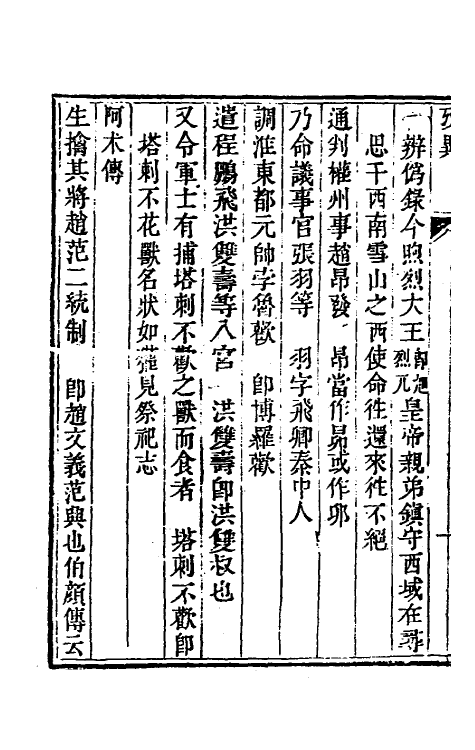 一辨偽錄今煦烈大王即旭烈兀皇帝親弟鎮守西域在尋
思干西南雪山之西使命徃還來徃不絕
通判權州事趙昂發 昂當作昴或作卯
乃命議事官張羽等 羽字飛卿秦中人
調淮東都元帥孛魯歡 即博羅歡
遣程鵬飛洪雙壽等入宮 洪雙壽即洪雙叔也
又令軍士有捕塔剌不歡之獸而食者 塔剌不歡即
塔剌不花獸名狀如見祭祀志
阿朮傳
生擒其將趙范二統制 即趙文義范興也伯顏傳云